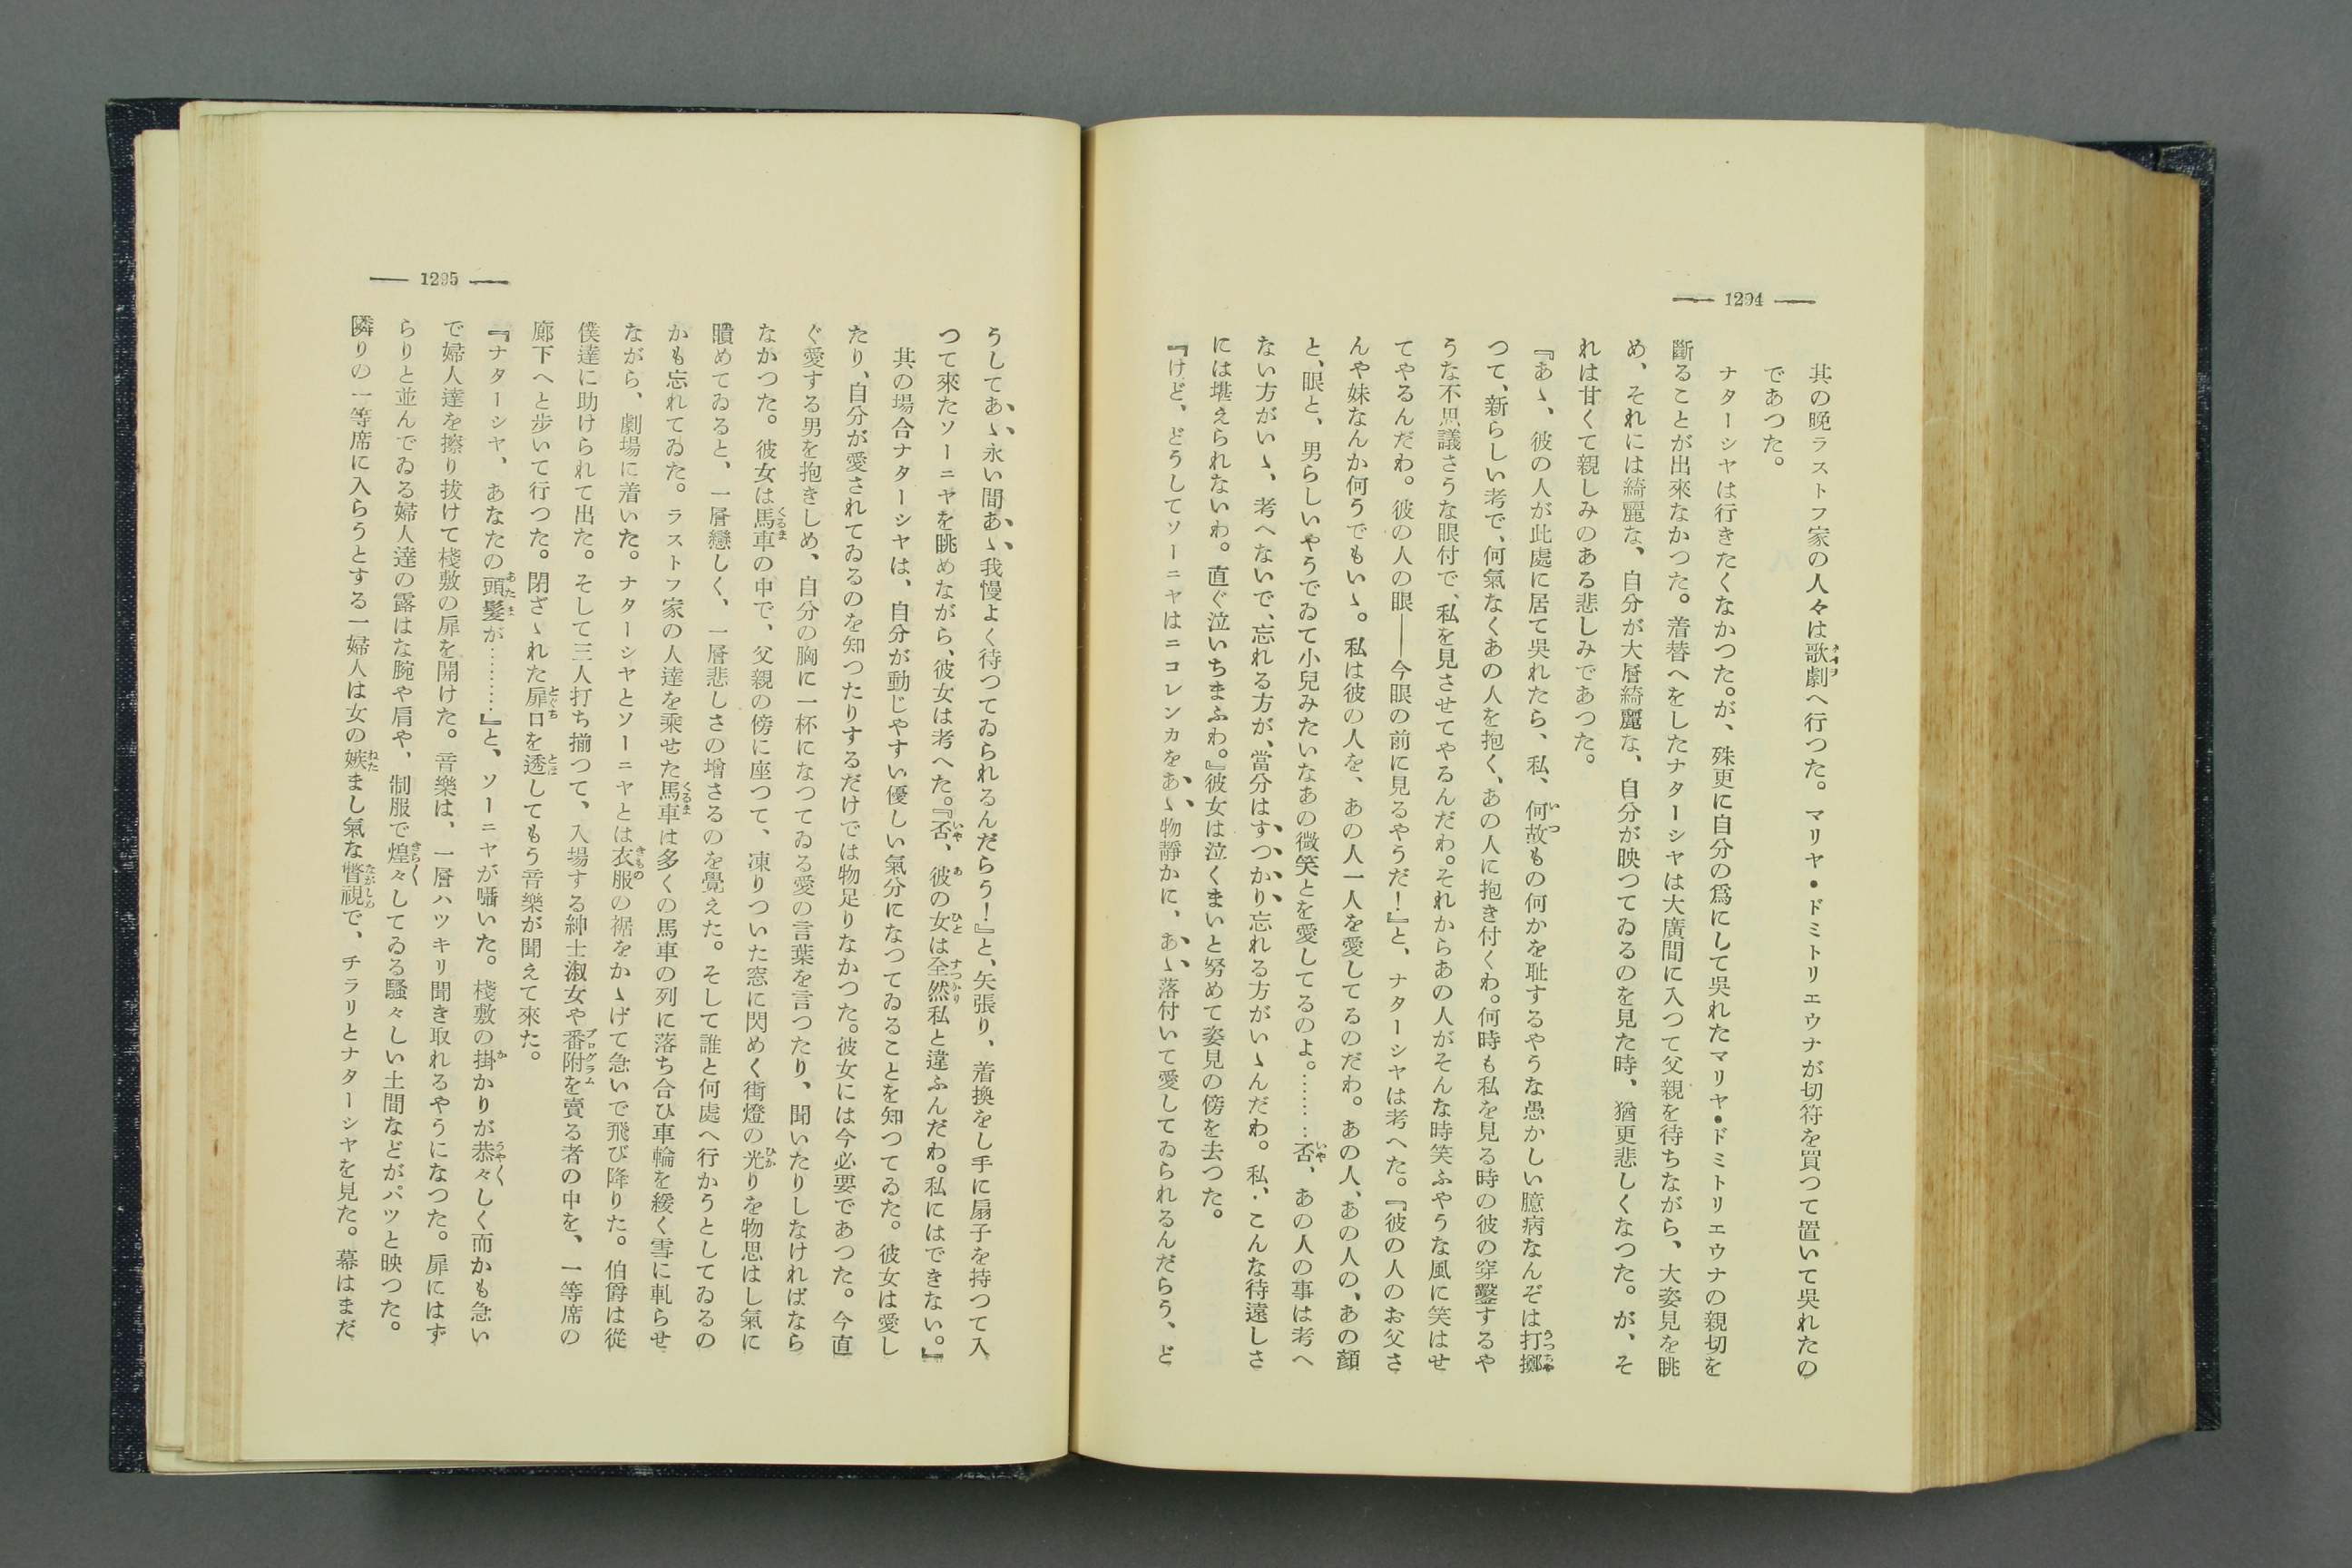 — 1294 —
其の晩ラストフ家の人々は歌劇へ行つた。マリヤ・ドミトリエウナが切符を買つて置いて呉れたの
であつた。
ナターシヤは行きたくなかつた。が、殊更に自分の爲にして呉れたマリヤ・ドミトリエウナの親切を
斷ることが出來なかつた。着替へをしたナターシヤは大廣間に入つて父親を待ちながら、大姿見を眺
め、それには綺麗な、自分が大層綺麗な、自分が映つてゐるのを見た時、猶更悲しくなつた。が、そ
れは甘くて親しみのある悲しみであつた。
『あゝ、彼の人が此處に居て呉れたら、私、何故もの何かを耻するやうな愚かしい臆病なんぞは打擲
つて、新らしい考で、何氣なくあの人を抱く、あの人に抱き付くわ。何時も私を見る時の彼の穿鑿するや
うな不思議さうな眼付で、私を見させてやるんだわ。それからあの人がそんな時笑ふやうな風に笑はせ
てやるんだわ。彼の人の眼——今眼の前に見るやうだ！』と、ナターシヤは考へた。『彼の人のお父さ
んや妹なんか何うでもいゝ。私は彼の人を、あの人一人を愛してるのだわ。あの人、あの人の、あの顏
と、眼と、男らしいやうでゐて小兒みたいなあの微笑とを愛してるのよ。………否、あの人の事は考へ
ない方がいゝ、考へないで、忘れる方が、當分はすつかり忘れる方がいゝんだわ。私、こんな待遠しさ
には堪えられないわ。直ぐ泣いちまふわ。』彼女は泣くまいと努めて姿見の傍を去つた。
『けど、どうしてソーニヤはニコレンカをあゝ物靜かに、あゝ落付いて愛してゐられるんだらう、ど
— 1295 —
うしてあゝ永い間あゝ我慢よく待つてゐられるんだらう！』と、矢張り、着換をし手に扇子を持つて入
つて來たソーニヤを眺めながら、彼女は考へた。『否、彼の女は全然私と違ふんだわ。私にはできない。』
其の場合ナターシヤは、自分が動じやすい優しい氣分になつてゐることを知つてゐた。彼女は愛し
たり、自分が愛されてゐるのを知つたりするだけでは物足りなかつた。彼女には今必要であつた。今直
ぐ愛する男を抱きしめ、自分の胸に一杯になつてゐる愛の言葉を言つたり、聞いたりしなければなら
なかつた。彼女は馬車の中で、父親の傍に座つて、凍りついた窓に閃めく街燈の光りを物思はし氣に
瞶めてゐると、一層戀しく、一層悲しさの增さるのを覺えた。そして誰と何處へ行かうとしてゐるの
かも忘れてゐた。ラストフ家の人達を乘せた馬車は多くの馬車の列に落ち合ひ車輪を緩く雪に軋らせ
ながら、劇場に着いた。ナターシヤとソーニヤとは衣服の裾をかゝげて急いで飛び降りた。伯爵は從
僕達に助けられて出た。そして三人打ち揃つて、入場する紳士淑女や番附を賣る者の中を、一等席の
廊下へと步いて行つた。閉ざゝれた扉口を透してもう音樂が聞えて來た。
『ナターシヤ、あなたの頭髮が………』と、ソーニヤが囁いた。棧敷の掛かりが恭々しく而かも急い
で婦人達を擦り拔けて棧敷の扉を開けた。音樂は、一層ハツキリ聞き取れるやうになつた。扉にはず
らりと並んでゐる婦人達の露はな腕や肩や、制服で煌々してゐる騷々しい土間などがパツと映つた。
隣りの一等席に入らうとする一婦人は女の嫉まし氣な瞥視で、チラリとナターシヤを見た。幕はまだ